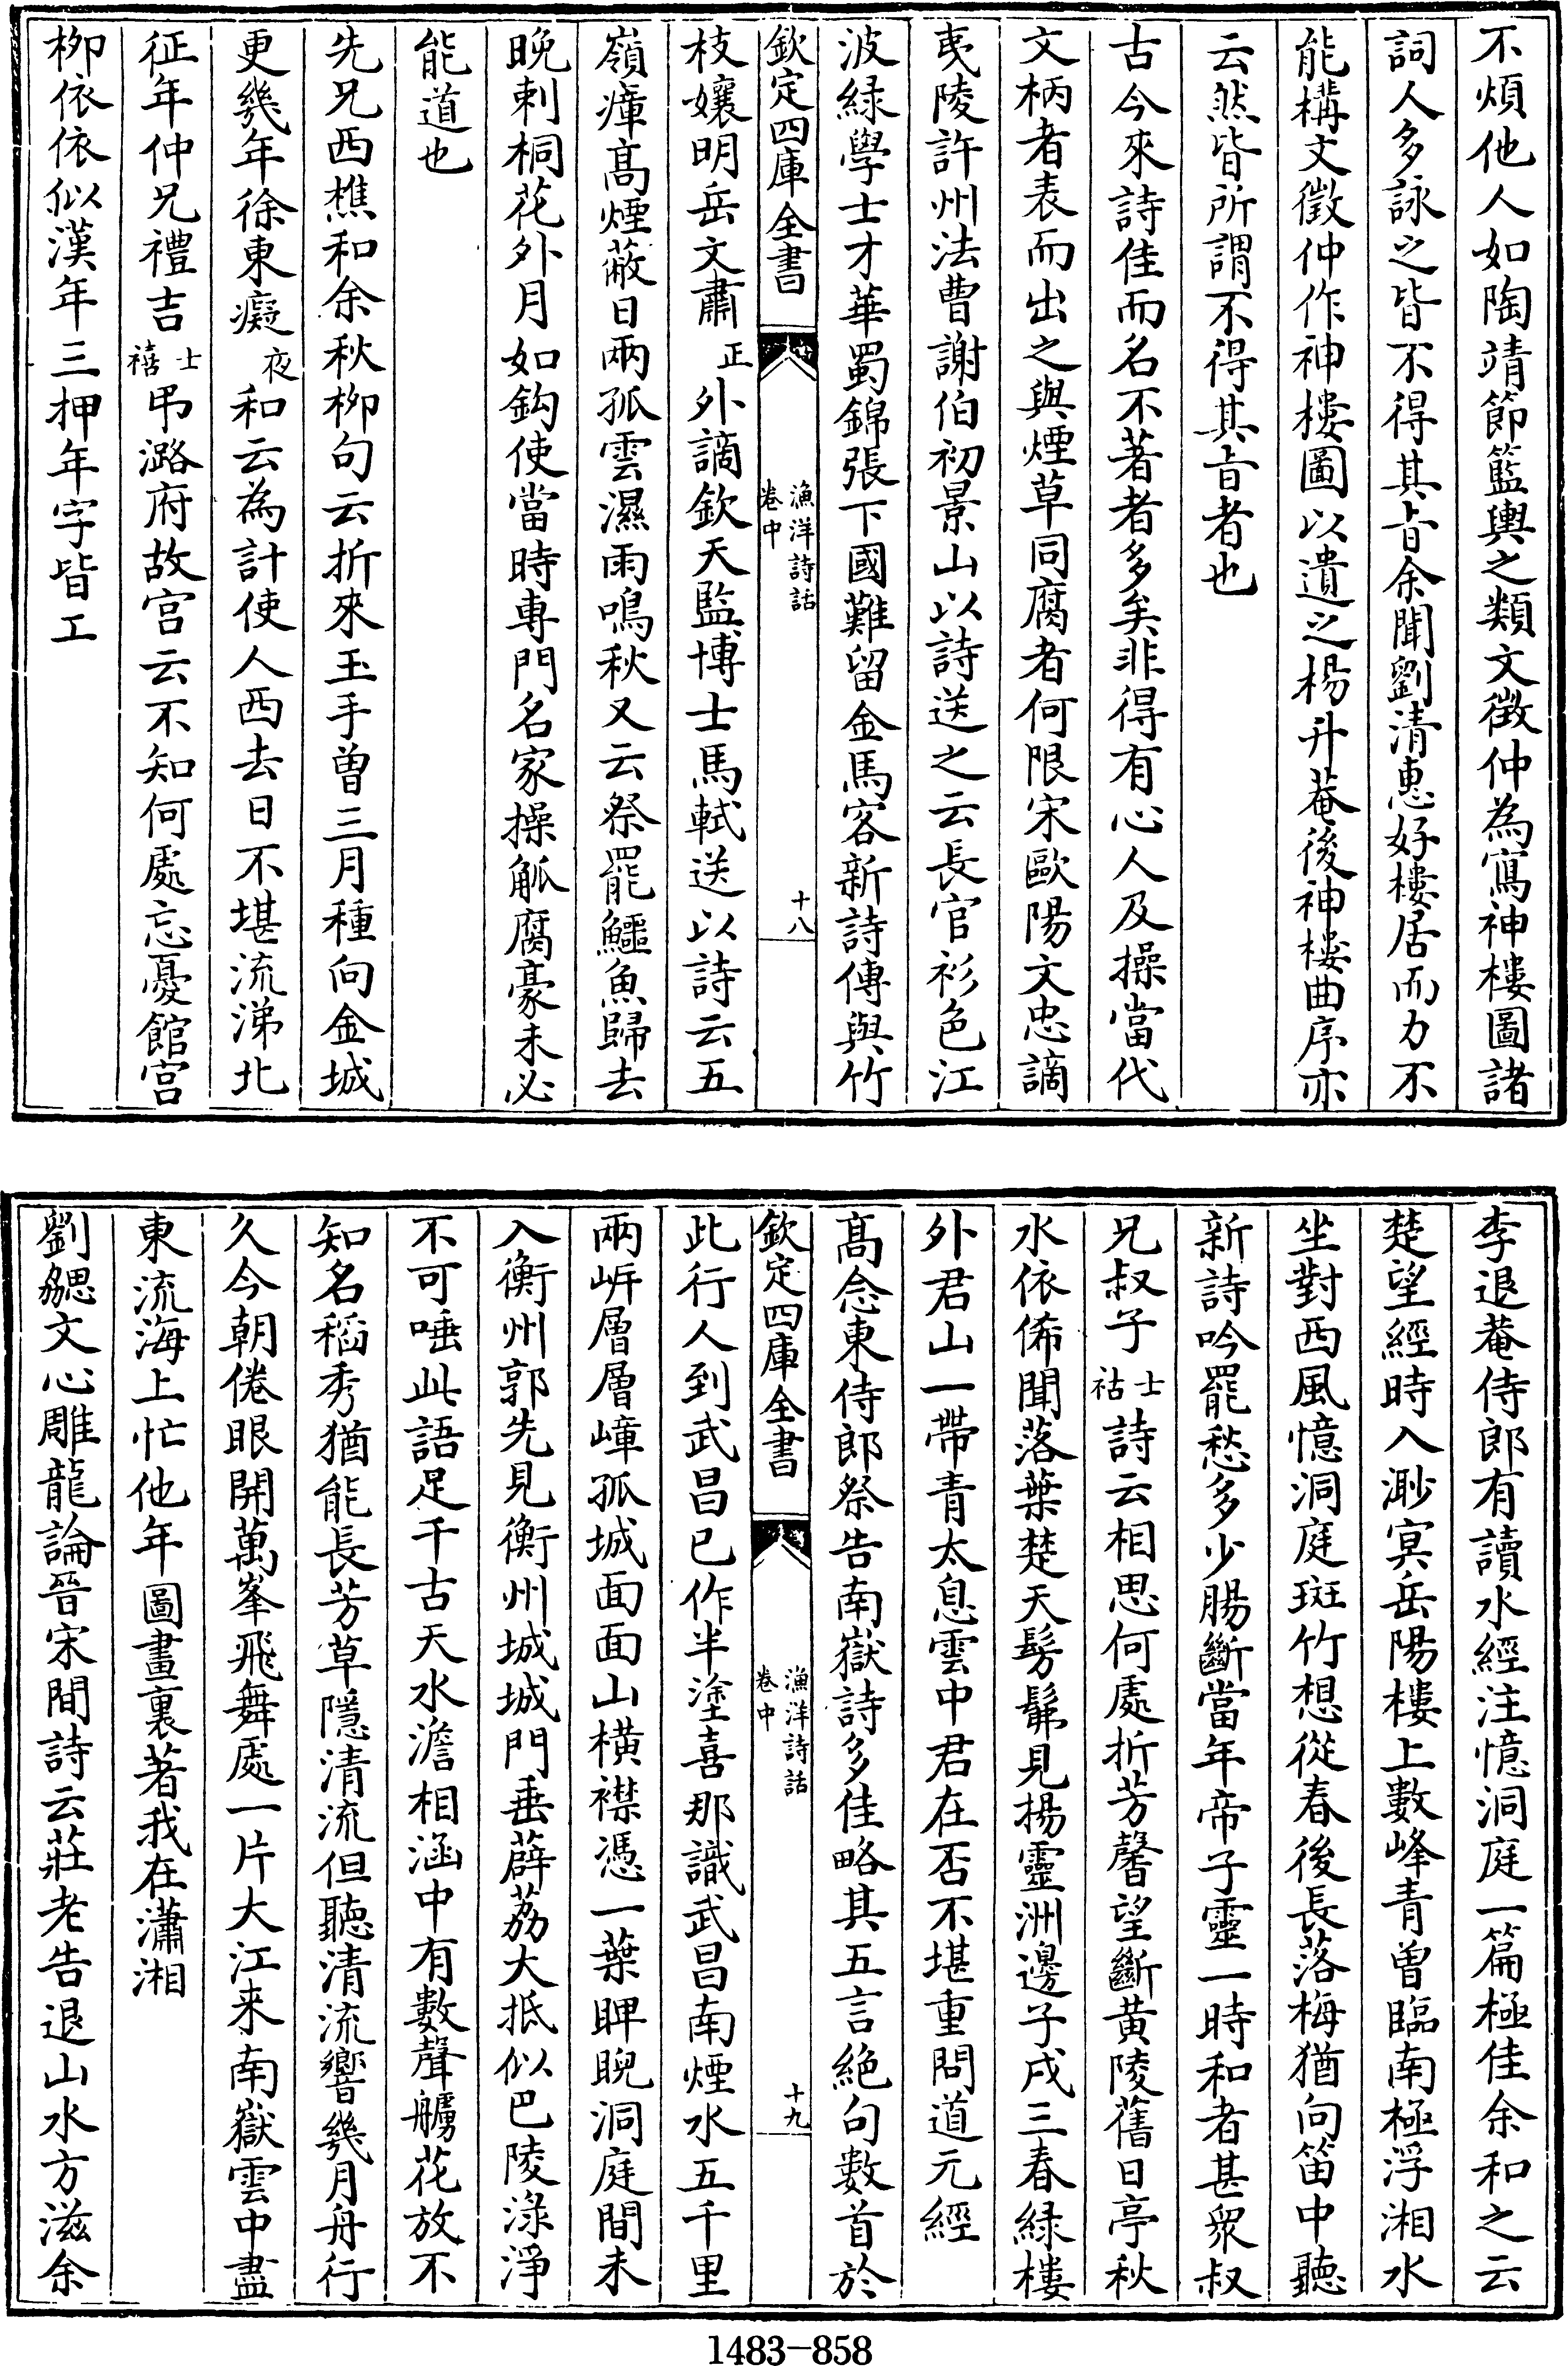 不煩他人如陶靖節籃輿之類文徵仲為寫神樓圖諸
詞人多詠之皆不得其旨余聞劉清惠好樓居而力不
能構文徵仲作神樓圖以遺之楊升菴後神樓曲序亦
云然皆所謂不得其旨者也
古今來詩佳而名不著者多矣非得有心人及操當代
文柄者表而出之與煙草同腐者何限宋歐陽文忠謫
夷陵許州法曹謝伯初景山以詩送之云長官衫色江
波綠學士才華蜀錦張下國難留金馬客新詩傳與竹
欽定四庫全書
漁洋詩話
卷中
十八
枝孃明岳文肅正外謫欽天監博士馬軾送以詩云五
嶺瘴高煙蔽日兩孤雲濕雨鳴秋又云祭罷鱷魚歸去
晚刺桐花外月如鈎使當時專門名家操觚腐豪未必
能道也
先兄西樵和余秋柳句云折來玉手曾三月種向金城
更幾年徐東癡夜和云為計使人西去日不堪流涕北
征年仲兄禮吉士禧弔潞府故宫云不知何處忘憂館宫
柳依依似漢年三押年字皆工
李退菴侍郎有讀水經注憶洞庭一篇極佳余和之云
楚望經時入渺冥岳陽樓上數峰青曾臨南極浮湘水
坐對西風憶洞庭斑竹想從春後長落梅猶向笛中聽
新詩吟罷愁多少腸斷當年帝子靈一時和者甚衆叔
兄叔子士祜詩云相思何處折芳馨望斷黃陵舊日亭秋
水依俙聞落葉楚天髣髴見揚靈洲邊子戍三春綠樓
外君山一帶青太息雲中君在否不堪重問道元經
高念東侍郎祭告南嶽詩多佳略其五言絶句數首於
欽定四庫全書
漁洋詩話
卷中
十九
此行人到武昌已作半塗喜那識武昌南煙水五千里
兩岍層層嶂孤城面面山橫襟憑一葉睥睨洞庭間未
入衡州郭先見衡州城城門垂薜荔大抵似巴陵淥淨
不可唾此語足千古天水澹相涵中有數聲艣花放不
知名稻秀猶能長芳草隱清流但聽清流響幾月舟行
久今朝倦眼開萬峯飛舞處一片大江来南嶽雲中盡
東流海上忙他年圖畫裏著我在瀟湘
劉勰文心雕龍論晉宋間詩云莊老告退山水方滋余
1483-858